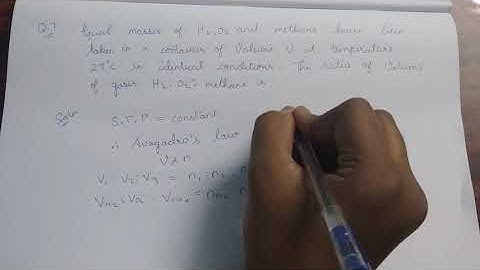 Q.7 Equal masses of H₂, O₂ and methane have been
taken in a container of Volume V at temperature
27°C in identical conditions. The ratio of Volumes
of gases H₂ : O₂ : methane is
Solⁿ S.T.P = constant
∴ Avogadro's law
V ∝ n
V₁ : V₂ : V₃ = n₁ : n₂ :